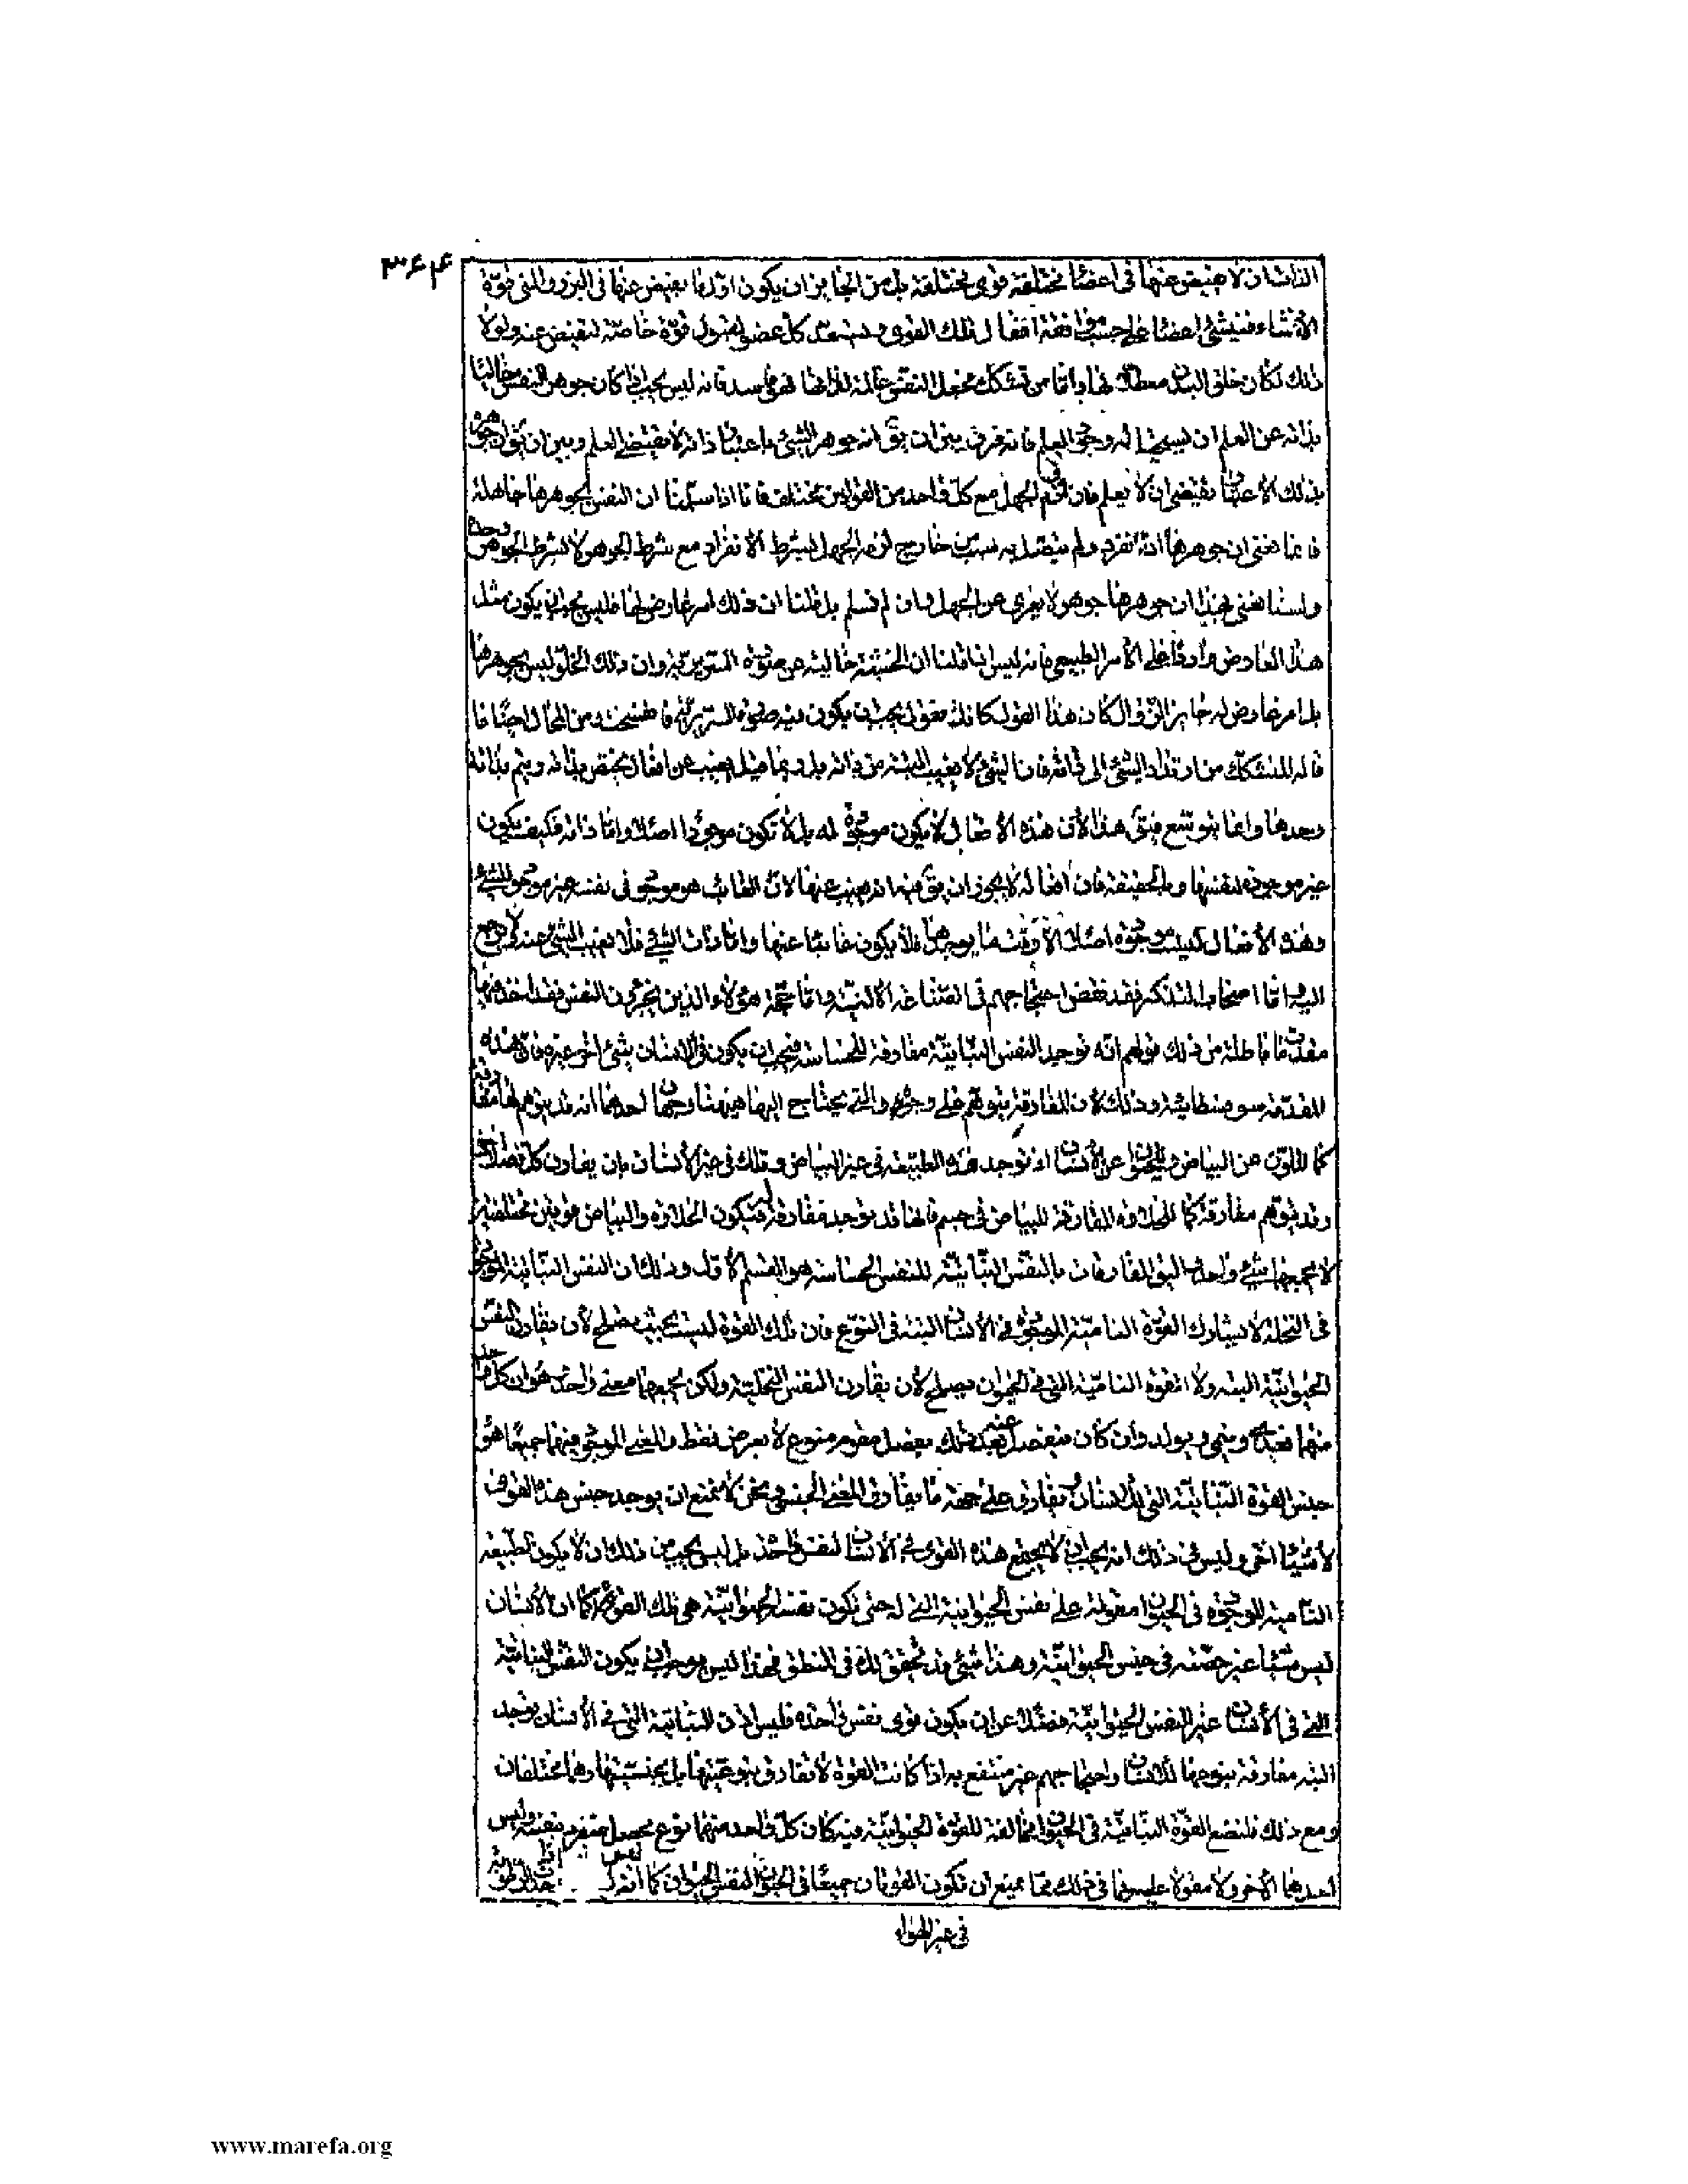 ۳۶۴
الذات ان لا يفيض عنها فى اعضاء مختلفة قوى مختلفة بل من الجايز ان يكون اول ما يفيض عنها فى البزر والمنى قوة
الأنشاء فينشئ اعضاء على حسب موافقة افعال تلك القوى ويستعد كل عضو لقبول قوة خاصة لتفيض عنه ولولا
ذلك لكان خلق البدن معطلا لها واما من تشكك فجعل النفس عالمة لذاتها فهو فاسد فانه ليس يجب اذا كان جوهر النفس خاليا
بذاته عن العلم ان يستحيل له وجود العلم فانه فرق بين ان يق انه جوهر الشئ باعتبار ذاته لا يقتضى العلم وبين ان يقول جوهره
بذلك الاعتبار يقتضى ان لا يعلم فان لزوم الجهل مع كل واحد من القولين مختلف فانا اذا سلمنا ان النفس لجوهرها جاهلة
فانما نعنى ان جوهرها اذا انفرد ولم يتصل به سبب من خارج لزمه الجهل بشرط الانفراد مع شرط الجوهر لا بشرط الجوهر وحده
ولسنا نعنى بهذا ان جوهرها جوهر لا يعرى عن الجهل وان لم نسلم بل قلنا ان ذلك امر عارض لها فليس يجب ان يكون مثل
هذا العارض واردا على الأمر الطبيعى فانه ليس اذا قلنا ان الخشبة خالية عن صورة السريرية وان ذلك الخلو ليس لجوهرها
بل امر عارض له جايز الزوال كان هذا القول كانك تقول يجب ان يكون فيه صورة السريرية فانفسخت ومن المحال احيانا
قاله المتشكك من ارتداد الشئ الى ذاته فان الشئ لا يغيب البتة من ذاته بل ربما قيل يغيب عن افعال يختص بذاته ويتم بذاته
وحدها وانما يتوسع فيق هذا لأن هذه الافعال لا يكون موجودة له بل لا تكون موجودا اصلا واما ذاته فكيف يكون
غير موجودة لنفسها وبالحقيقة فان افعاله لا يجوز ان يق فيه انه يغيب عنها لان الغائب هو موجود فى نفسه غير موجود للشئ
وهذه الأفعال ليست موجودة اصلا الا وقت ما يوجدها فلا يكون غائبا عنها واما ذات الشئ فلا يغيب الشئ عنه ولا يرجع
اليه واما اصحاب التذكر فقد نقض احتجاجهم فى الصناعة الالية واما حجة هؤلاء الذين يجزؤن النفس فقد اخذ فيها
مقدمات باطلة من ذلك قولهم انه توجد النفس النباتية مفارقة للحساسة فيجب ان يكون فى الانسان شئ اخر غيره فان هذه
المقدمة سوفسطائية وذلك لأن المفارقة يتوهم على وجوه والتى يحتاج اليها هيهنا وجهان احدهما انه قد يتوهم لها مفارقة
كما للون عن البياض وللحيوان عن الأنسان اذ توجد هذه الطبيعة فى غير البياض وتلك فى غير الأنسان بان يقارن كل فصلا آخر
وقد يتوهم مفارقة كما للحلاوة المقارنة للبياض فى جسم فانها قد يوجد مفارقة له فيكون الحلاوة والبياض قوتين مختلفتين
لا يجمعهما شئ واحد واليق المفارقات بالنفس النباتية للنفس الحساسة هو القسم الأول وذلك ان النفس النباتية الموجودة
فى النخلة لا يشارك القوة النامية الموجودة فى الأنسان البتة فى النوع فان تلك القوة ليست بحيث يصلح لأن يقارن النفس
الحيوانية البتة ولا القوة النامية التى فى الحيوان يصلح لأن يقارن النفس النخلية ولكن يجمعهما معنى واحد هو ان كل واحد
منهما تغذى وينمى ويولد وان كان ينفصل عنه بعد ذلك بفصل مقوم منوع لا بعرض فقط والمعنى الموجود فيهما جميعا هو
جنس القوة النباتية التى للانسان ويفارق على جهة ما يفارق المعنى الجنسى ونحن لا نمنع ان يوجد جنس هذه القوى
لأشياء اخرى وليس فى ذلك انه يجب ان لا يجتمع هذه القوى فى الأنسان لنفس واحدة بل ليس يجب من ذلك ان لا يكون الطبيعة
النامية الموجودة فى الحيوان مقولة على نفس الحيوانية التى له حتى يكون نفسه الحيوانية هى تلك القوة كما ان الأنسان
ليس شيئا غير حصته فى جنس الحيوانية وهذا شئ قد تحقق لك فى المنطق فهذا ليس يوجب ان يكون النفس النباتية
التى فى الأنسان غير النفس الحيوانية فضلا عن ان يكون قوى نفس واحدة فليس اذن النباتية التى فى الأنسان يوجد
البتة مفارقة بنوعها للانسان واحتجاجهم غير منتفع به اذا كانت القوة لا تفارق بنوعيتها بل بجنسيتها وهما مختلفان
ومع ذلك فلنضع القوة النباتية فى الحيوان مخالفة للقوة الحيوانية فيه كان كل واحد منهما نوع محصل منفرد بنفسه وليس
احدهما الاخر ولا مقولا عليه فما فى ذلك مما يمنع ان تكون القوتان جميعا فى الحيوان لنفس الحيوان كما انه ليس اذا وجدت الرطوبة
فى غير الهواء
www.marefa.org